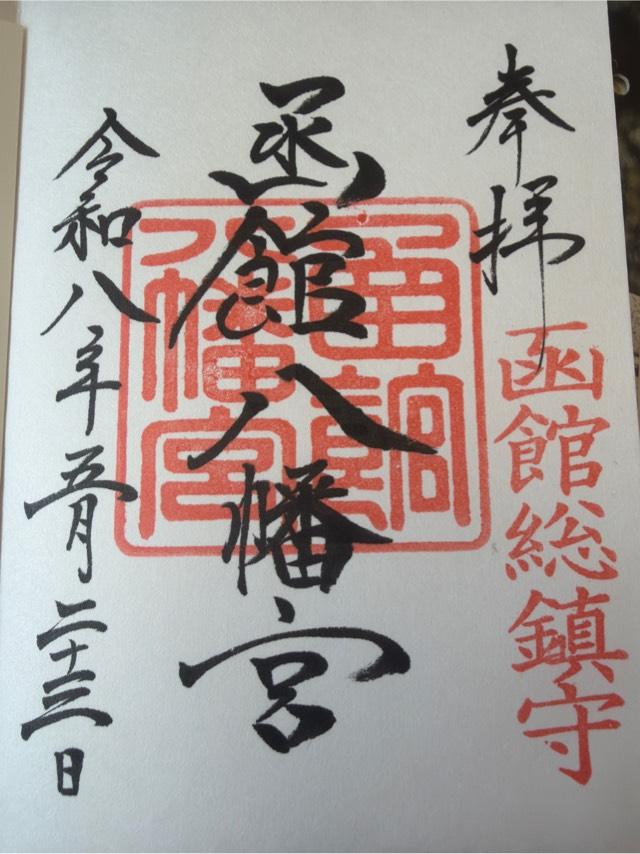 奉拝
函館総鎮守
函館八幡宮
函館八幡宮
令和八年五月二十三日